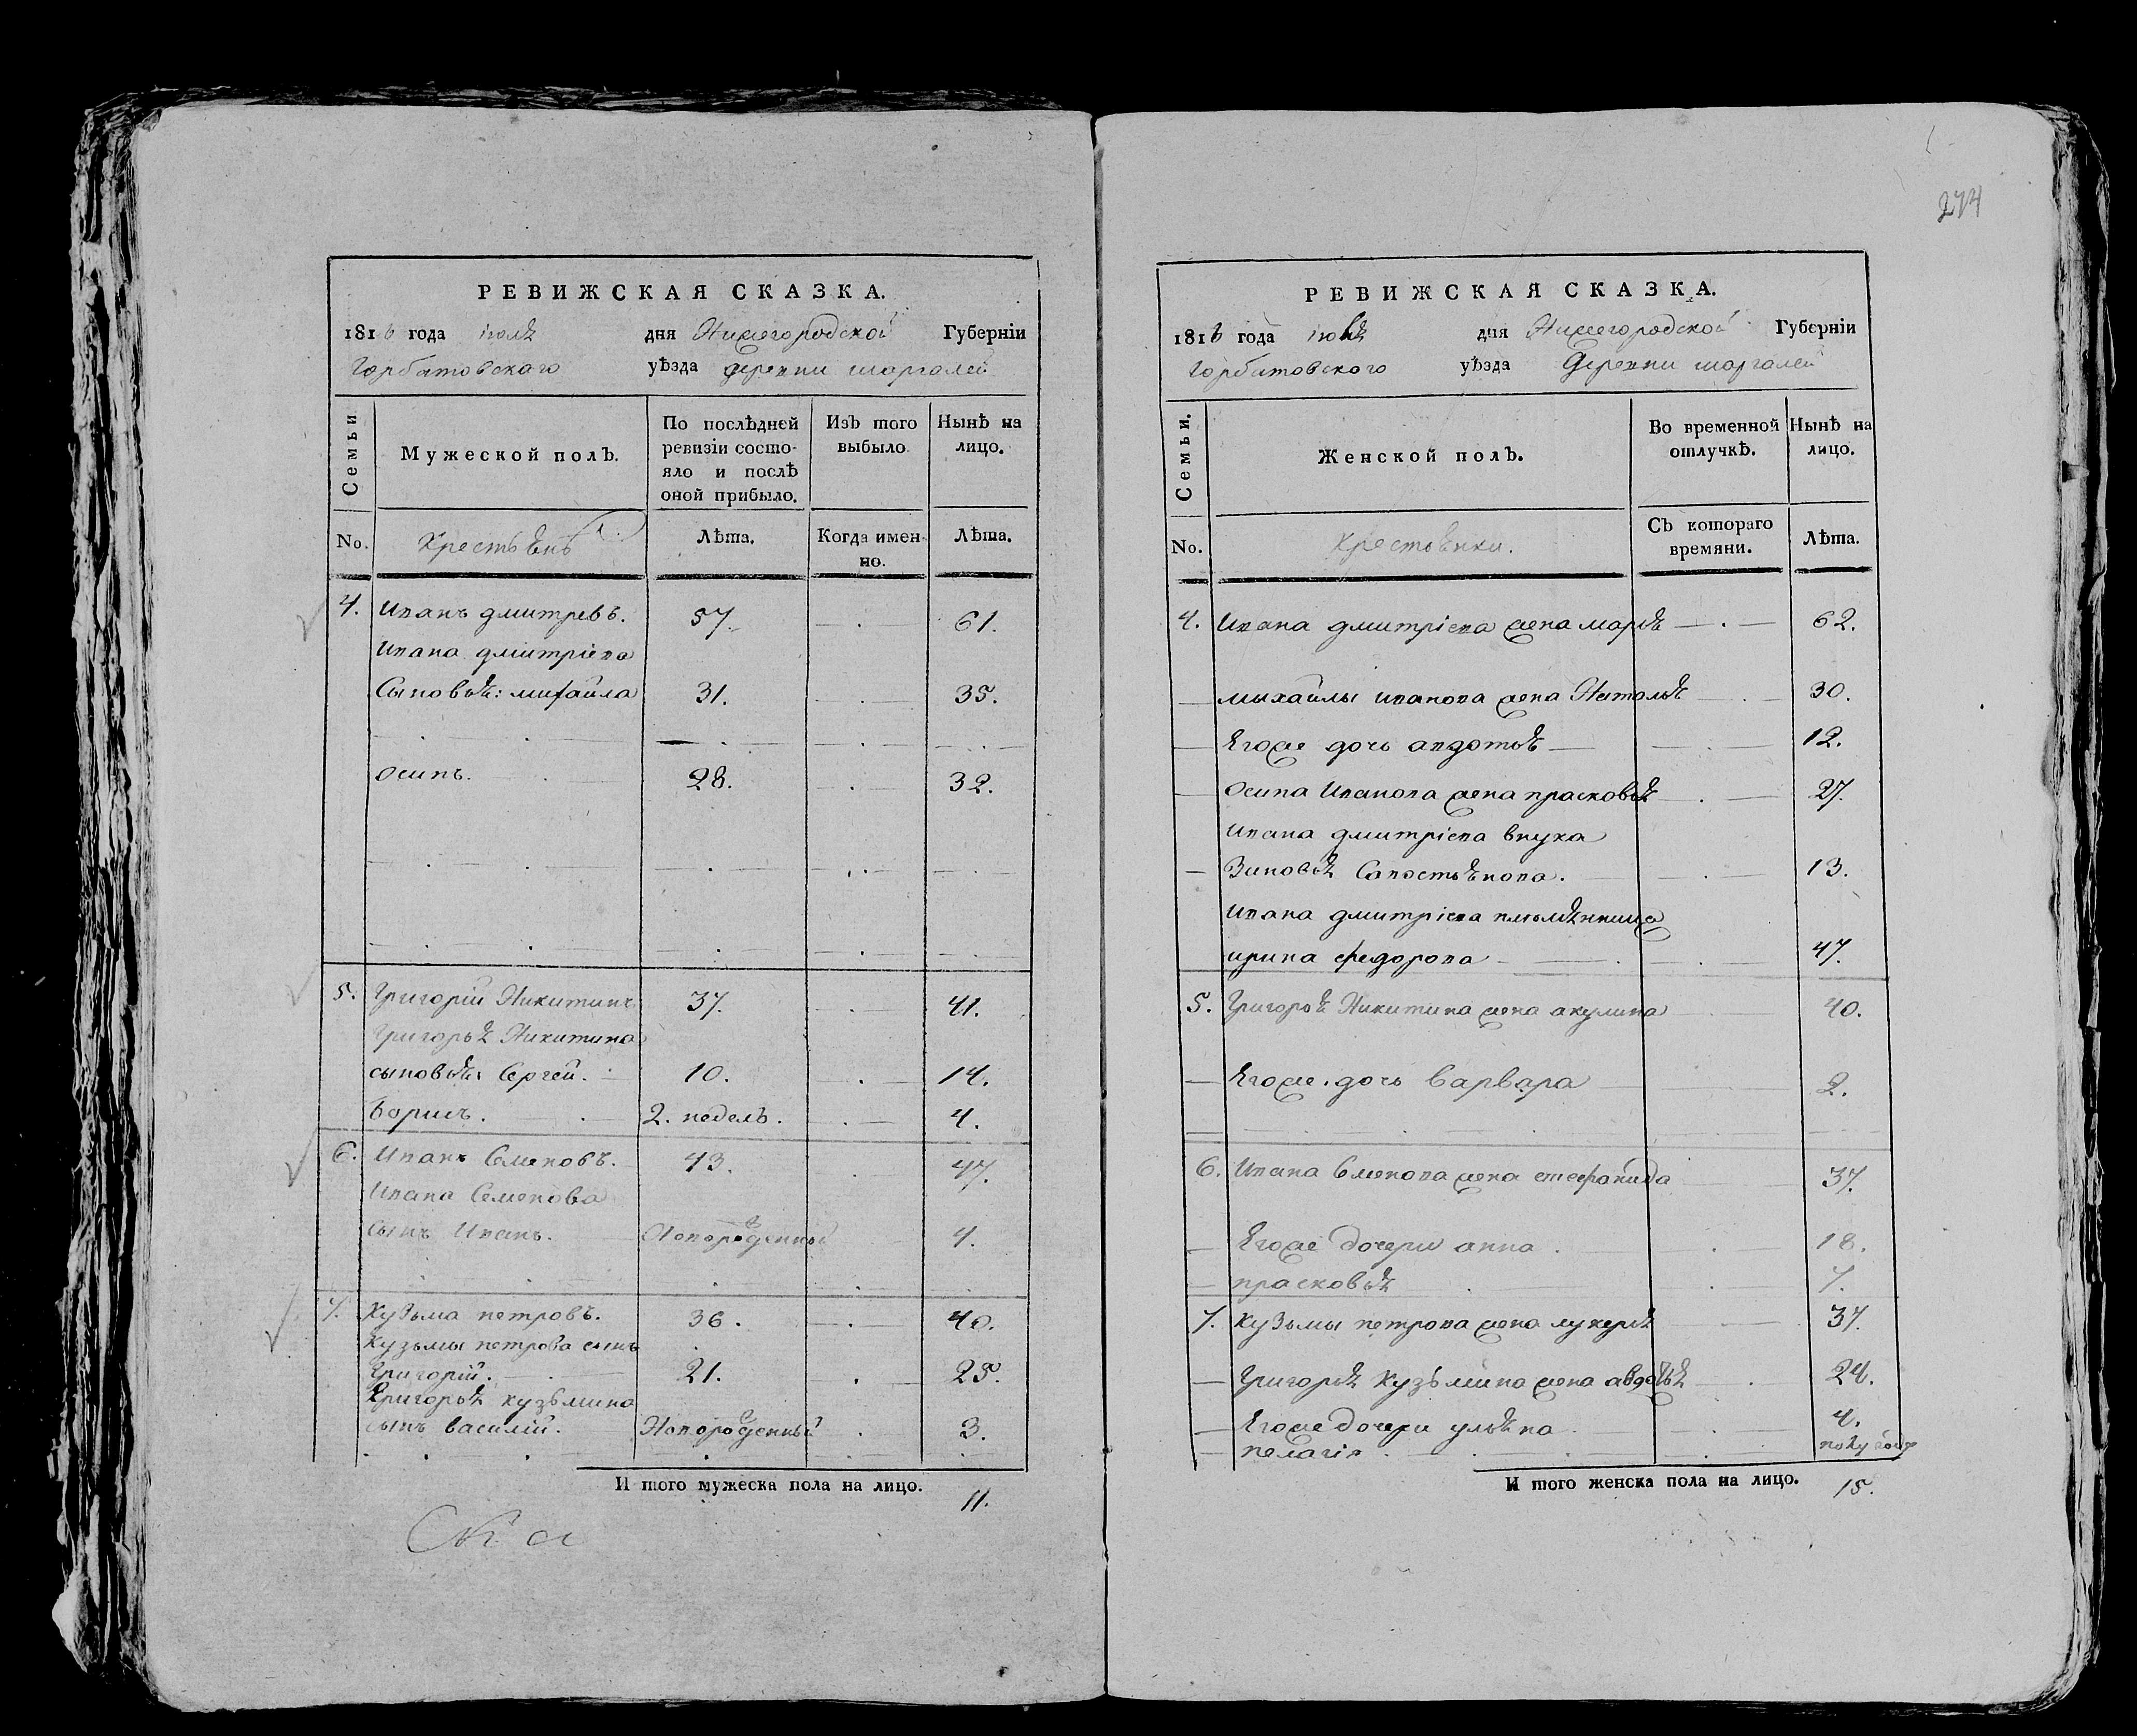 РЕВИЖСКАЯ СКАЗКА.
1816 года іюлѣ дня Нижегородской Губерніи
Горбатовскаго уѣзда деревни шаргалей
Семьи
Мужеской полъ.
По послѣдней ревизіи состояло и послѣ оной прибыло.
Изъ того выбыло
Нынѣ на лицо.
No.
Крестьѣнъ
Лѣта.
Когда именно.
Лѣта.
4. Иванъ дмитревъ. 57. 61.
Ивана дмитріева
Сыновьѣ: михайла 31. 35.
Осипъ. 28. 32.
5. Григорій Никитинъ 37. 41.
Григорьѣ Никитина
сыновьѣ: Сергей. 10. 14.
Борисъ. 2. недель. 4.
6. Иванъ Семеновъ. 43. 47.
Ивана Семенова
сынъ Иванъ. Новорожденный 4.
7. Кузьма петровъ. 36. 40.
Кузьмы петрова сынъ
Григорій. 21. 25.
Григорьѣ кузьмина
сынъ василій. Новорожденный 3.
И того мужеска пола на лицо. 11.
274
РЕВИЖСКАЯ СКАЗКА.
1816 года іюлѣ дня Нижегородской Губерніи
Горбатовского уѣзда Деревни шаргалей
Семьи.
Женской полъ.
Во временной отлучкѣ.
Нынѣ на лицо.
No.
Крестьѣнки.
Съ котораго времяни.
Лѣта.
4. Ивана дмитріева жена марьѣ 62.
михайлы иванова жена Натальѣ 30.
Егоже дочь авдотьѣ 12.
Осипа Иванова жена прасковьѣ 27.
Ивана дмитріева внука
Зиновьѣ Савостьѣнова. 13.
Ивана дмитріева племѣнница
ирина федорова 47.
5. Григорьѣ Никитина жена акулина 40.
Егоже дочь Варвара 2.
6. Ивана Семенова жена стефанида 37.
Егоже дочери анна. 18.
прасковьѣ 7.
7. Кузьмы петрова жена лукерьѣ 37.
Григорьѣ Кузьмина жена авдотьѣ 24.
Егоже дочери ульѣна 4.
пелагія
И того женска пола на лицо. 15.